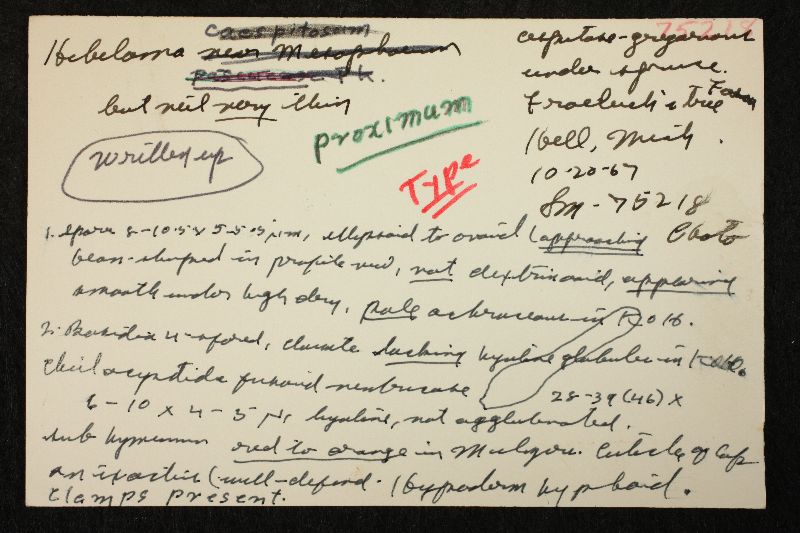 caespitosum
Hebeloma near mesophaeum
Pk.
but veil very thin
proximum
Type
written up
75218
cespitose-gregarious
under spruce.
Tree Farm
Hell, Mich.
10-20-67
Sm-75218
Photo
1. Spores 8-10.5 x 5-5.5 µm, ellipsoid to ovoid (approaching
bean-shaped in profile view, not dextrinoid, appearing
smooth under high dry, pale ochraceous in KOH.
2. Basidia 4-spored, clavate lacking hyaline globules in KOH.
Cheilocystidia fusoid ventricose 28-39 (46) x
6-10 x 4-5 µ, hyaline, not agglutinated.
subhymenium red to orange in Melzers. Cuticle of cap
an ixocutis (well-defined. Hypoderm hyphoid.
Clamps present.